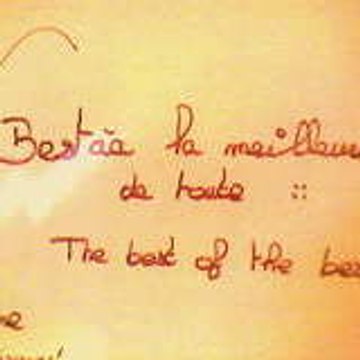 Bestãa la meilleu
de toute ::
The best of the bes